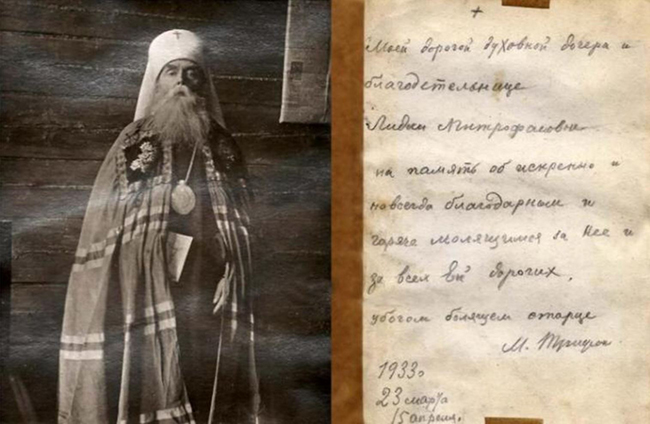 +
Моей дорогой духовной дочери и
благодетельнице
Лидии Митрофановне
на память об искренно и
навсегда благодарным и
горячо молящимся за Нее и
за всех ей дорогих,
убогом болящем старце
М. Трифон
1933г
23 марта
/5 апреля.